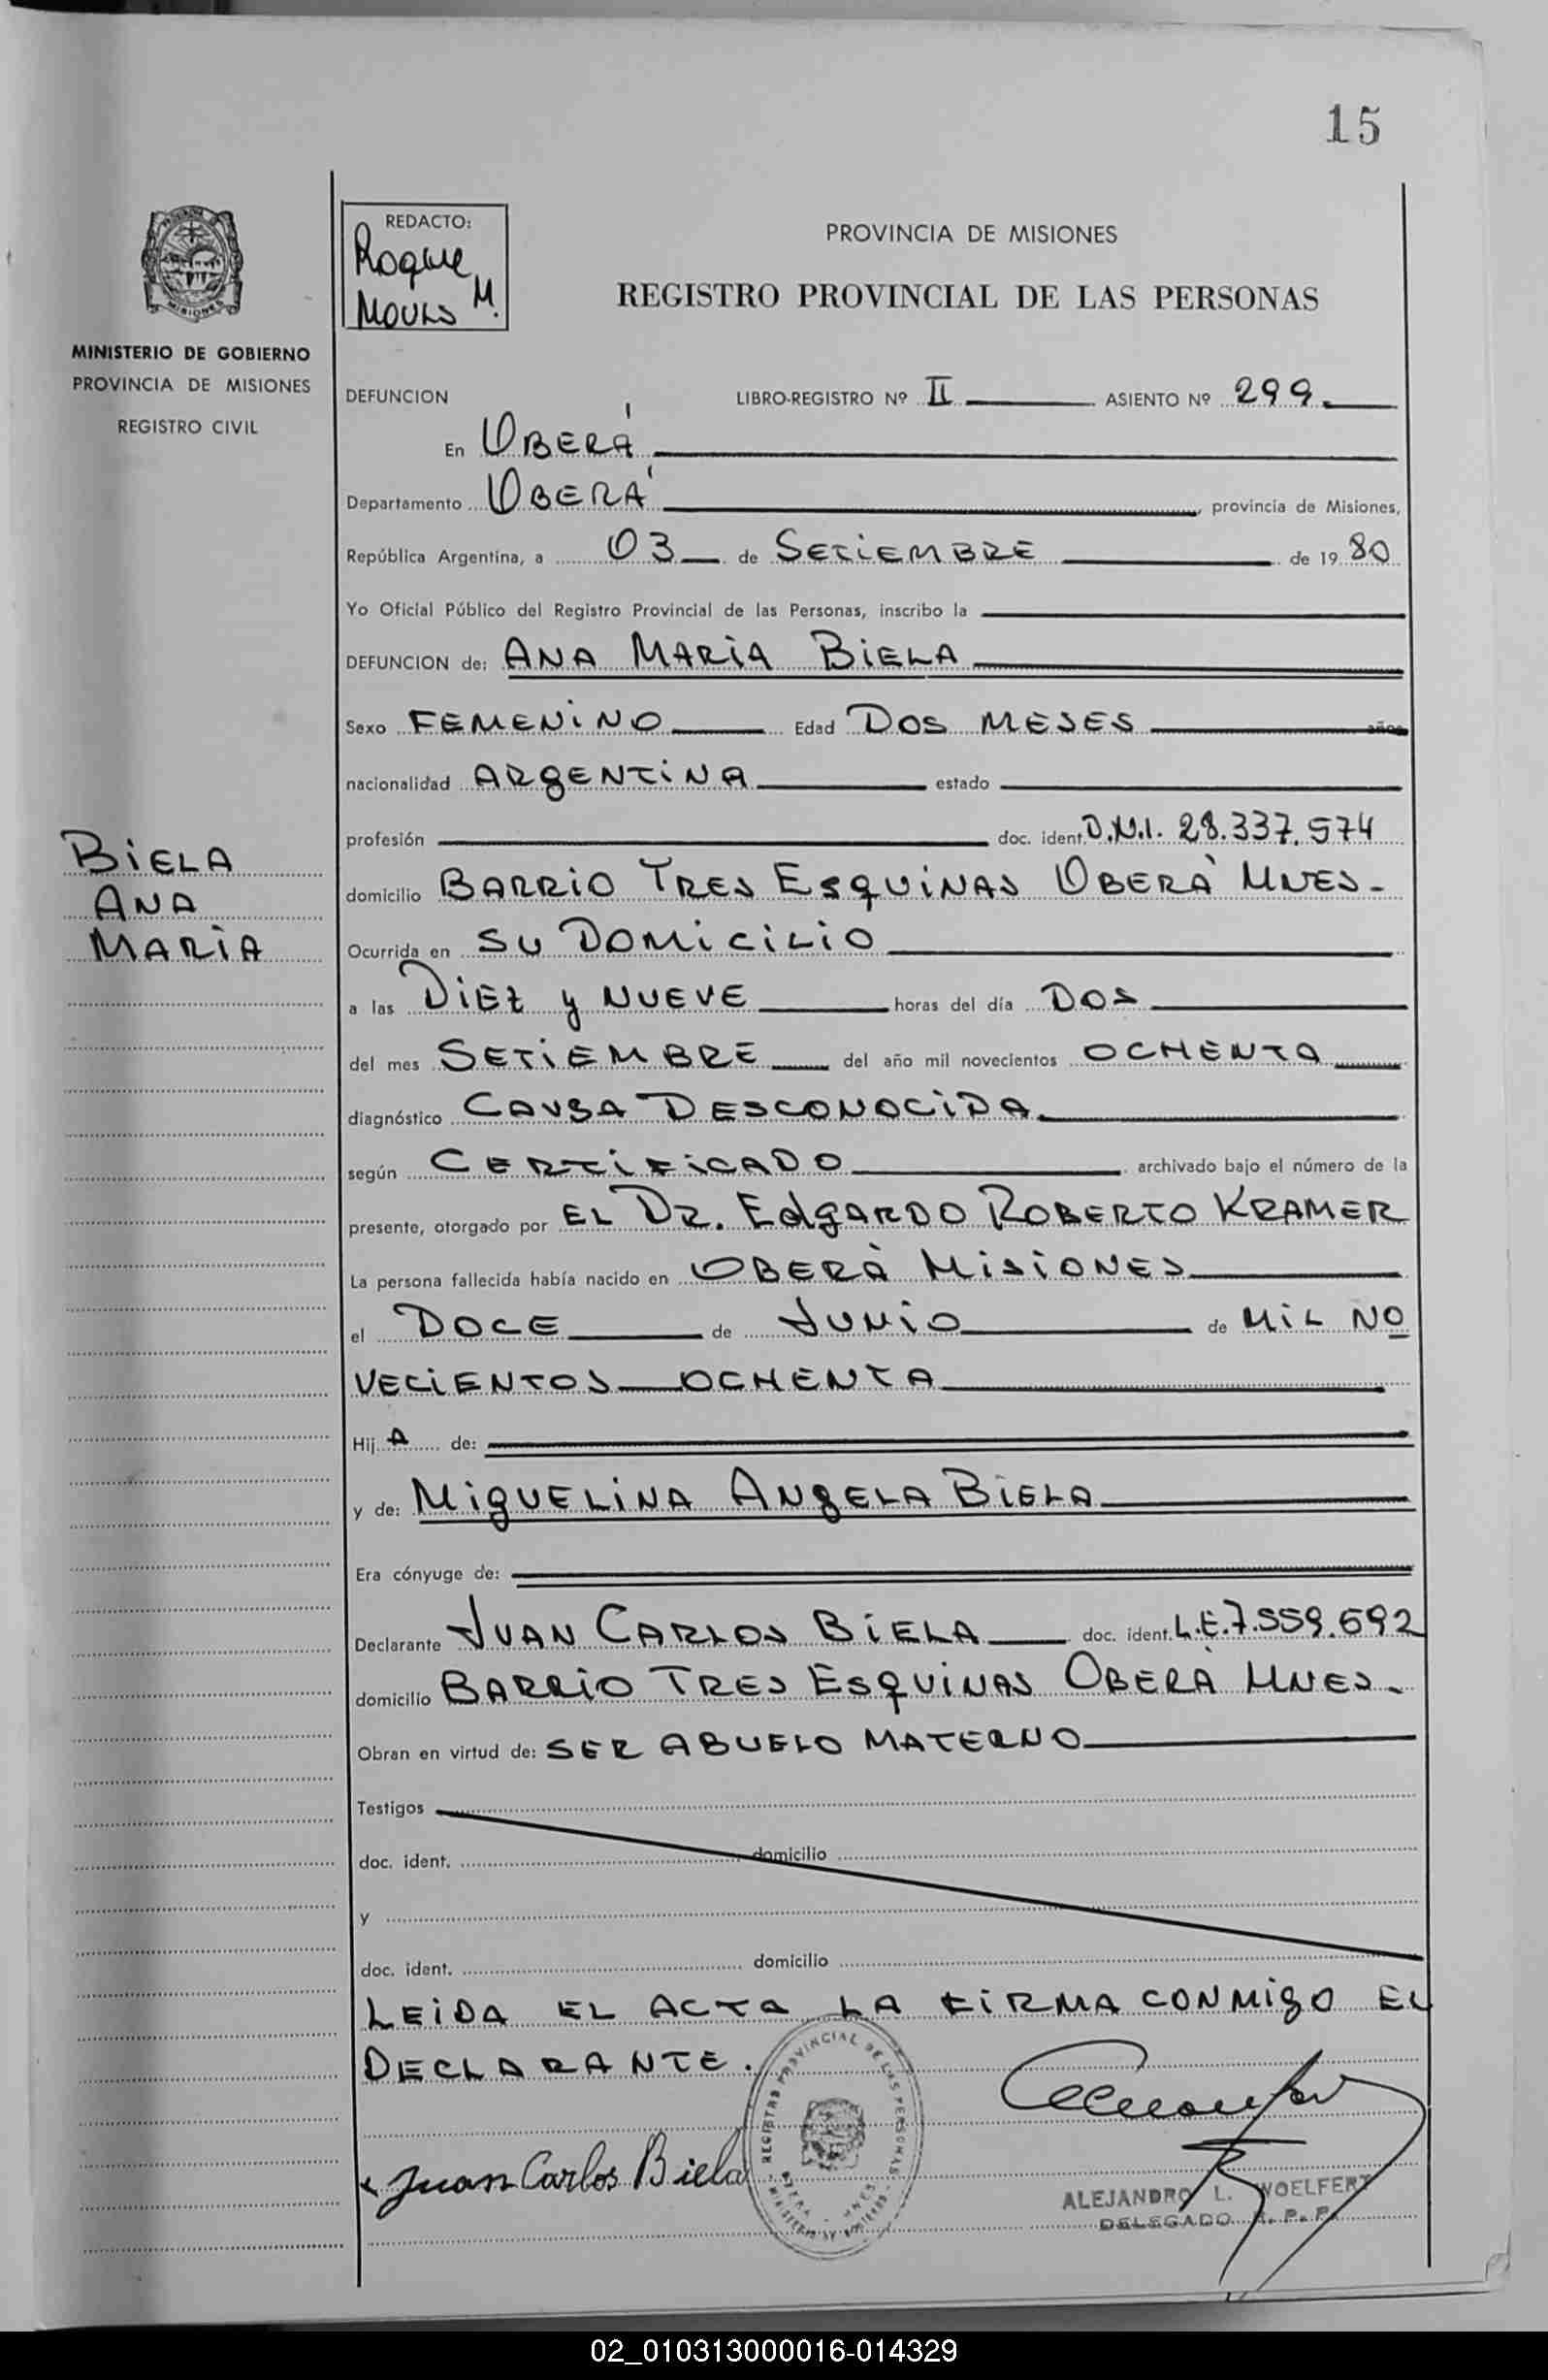 15
REDACTO:
Roque
M.
PROVINCIA DE MISIONES
REGISTRO PROVINCIAL DE LAS PERSONAS
MISIONES
MINISTERIO DE GOBIERNO
PROVINCIA DE MISIONES
REGISTRO CIVIL
DEFUNCION LIBRO-REGISTRO Nº II ASIENTO Nº 299
En OBERÁ
Departamento OBERÁ, provincia de Misiones,
República Argentina, a 03 de SETIEMBRE de 19 80
Yo Oficial Público del Registro Provincial de las Personas, inscribo la
DEFUNCION de: ANA MARIA BIELA
Sexo FEMENINO Edad DOS MESES años
nacionalidad ARGENTINA estado
profesión doc. ident. D.N.I. 28.337.574
BIELA
ANA
MARIA
domicilio BARRIO TRES ESQUINAS OBERÀ MNES-
Ocurrida en SU DOMICILIO
a las DIEZ y NUEVE horas del día DOS
del mes SETIEMBRE del año mil novecientos OCHENTA
diagnóstico CAUSA DESCONOCIDA
según CERTIFICADO archivado bajo el número de la
presente, otorgado por EL DR. EDGARDO ROBERTO KRAMER
La persona fallecida había nacido en OBERÀ MISIONES
el DOCE de JUNIO de MIL NO
VECIENTOS OCHENTA
Hij A de:
y de: MIGUELINA ANGELA BIELA
Era cónyuge de:
Declarante JUAN CARLOS BIELA doc. ident. L.E. 7.559.692
domicilio BARRIO TRES ESQUINAS OBERÀ MNES-
Obran en virtud de: SER ABUELO MATERNO
Testigos
doc. ident. domicilio
y
doc. ident. domicilio
LEIDA EL ACTA LA FIRMA CONMIGO EL
DECLARANTE.
REGISTRO PROVINCIAL DE LAS PERSONAS
Juan Carlos Biela
ALEJANDRO L. WOELFERT
DELEGADO R. P. P.
02_010313000016-014329